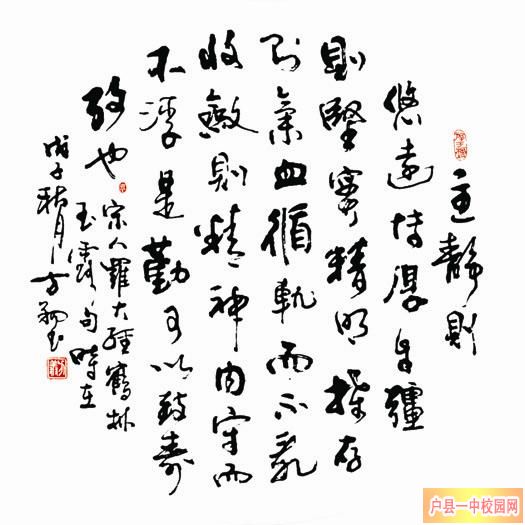 主靜則
悠遠博厚自彊
則堅實精明操存
則氣血循軌而不亂
收斂則精神内守而
不浮是勤可以致壽
攷也
宋人羅大經鶴林
玉露句時在
戊子秋月方
户县一中校园网